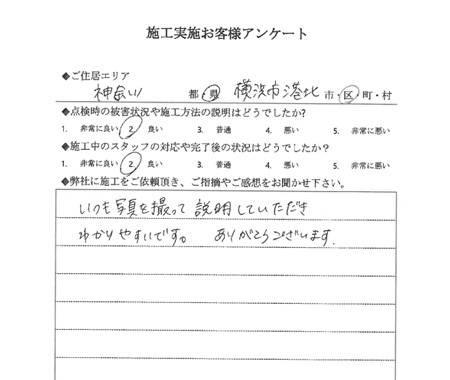 施工実施お客様アンケート
◆ご住居エリア
神奈川 都・県 横浜市港北 市・区・町・村
◆点検時の被害状況や施工方法の説明はどうでしたか?
1. 非常に良い 2. 良い 3. 普通 4. 悪い 5. 非常に悪い
◆施工中のスタッフの対応や完了後の状況はどうでしたか?
1. 非常に良い 2. 良い 3. 普通 4. 悪い 5. 非常に悪い
◆弊社に施工をご依頼頂き、ご指摘やご感想をお聞かせ下さい。
いつも写真を撮って説明していただき
わかりやすいです。 ありがとうございます.